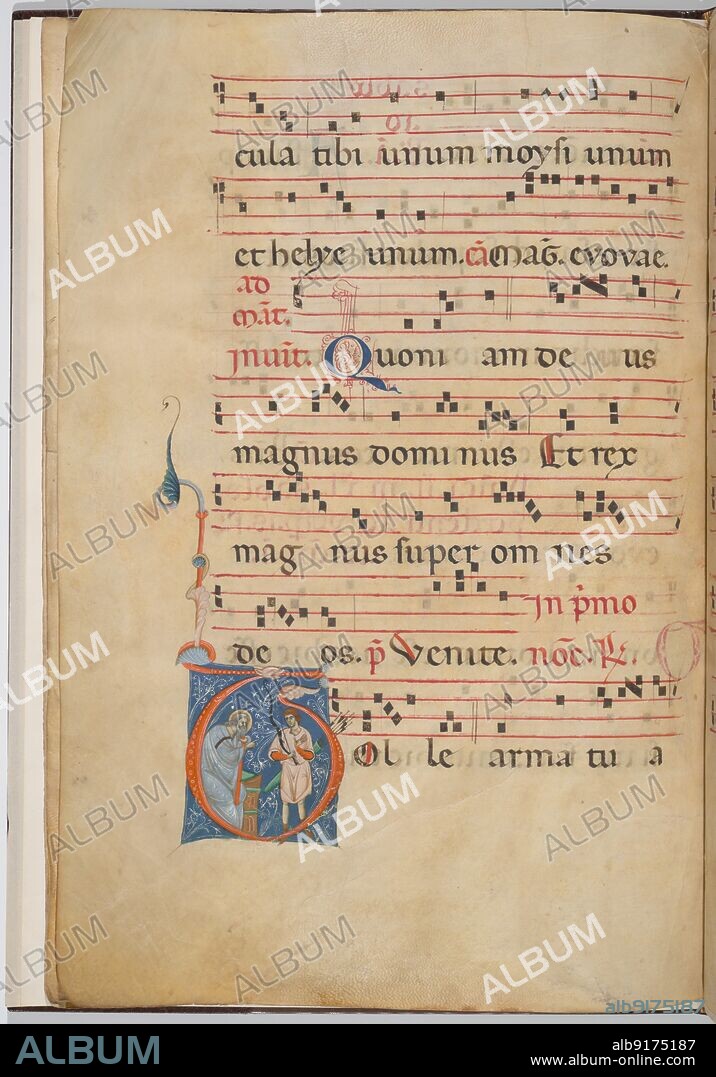 cula tibi unum moysi unum
et helye unum. cā Mag̃. evovae.
ad
Mat̃.
Inuit̃. Quoni am de us
magnus domi nus Et rex
mag nus super om nes
In p̃mo
de os. p̃ Venite. noc̃. R.
Ol le arma tu a
ALBUM
alb9175187
ALBUM
alb9175187
www.album-online.com